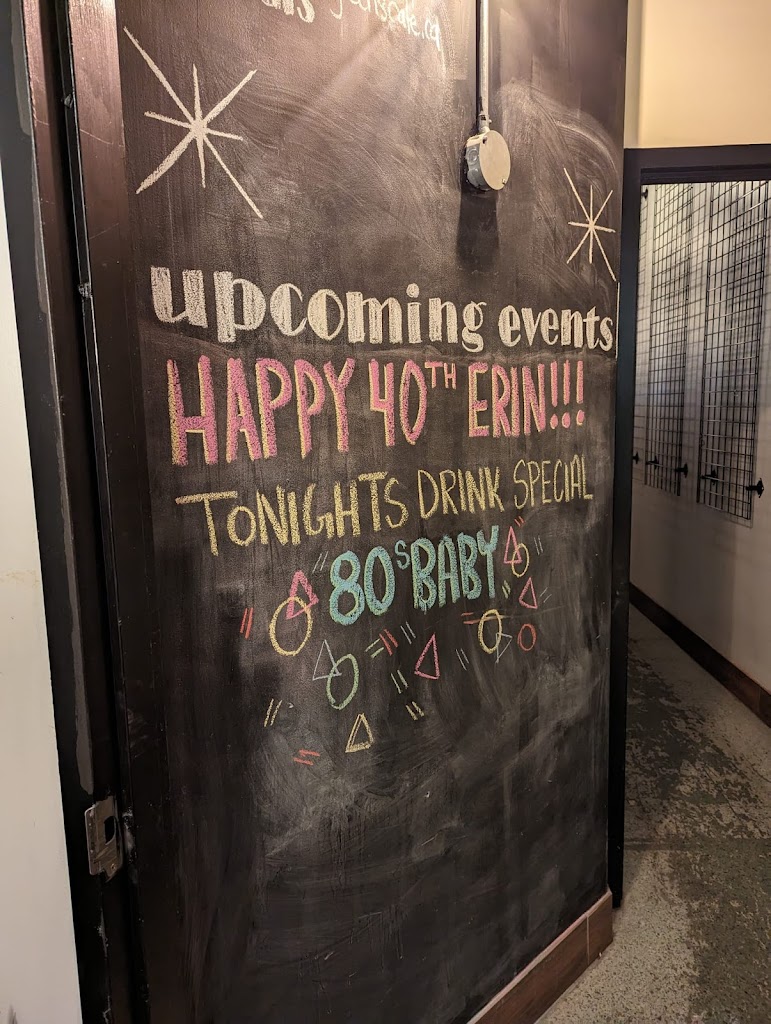 upcoming events
HAPPY 40TH ERIN!!!
TONIGHTS DRINK SPECIAL
"80s BABY"